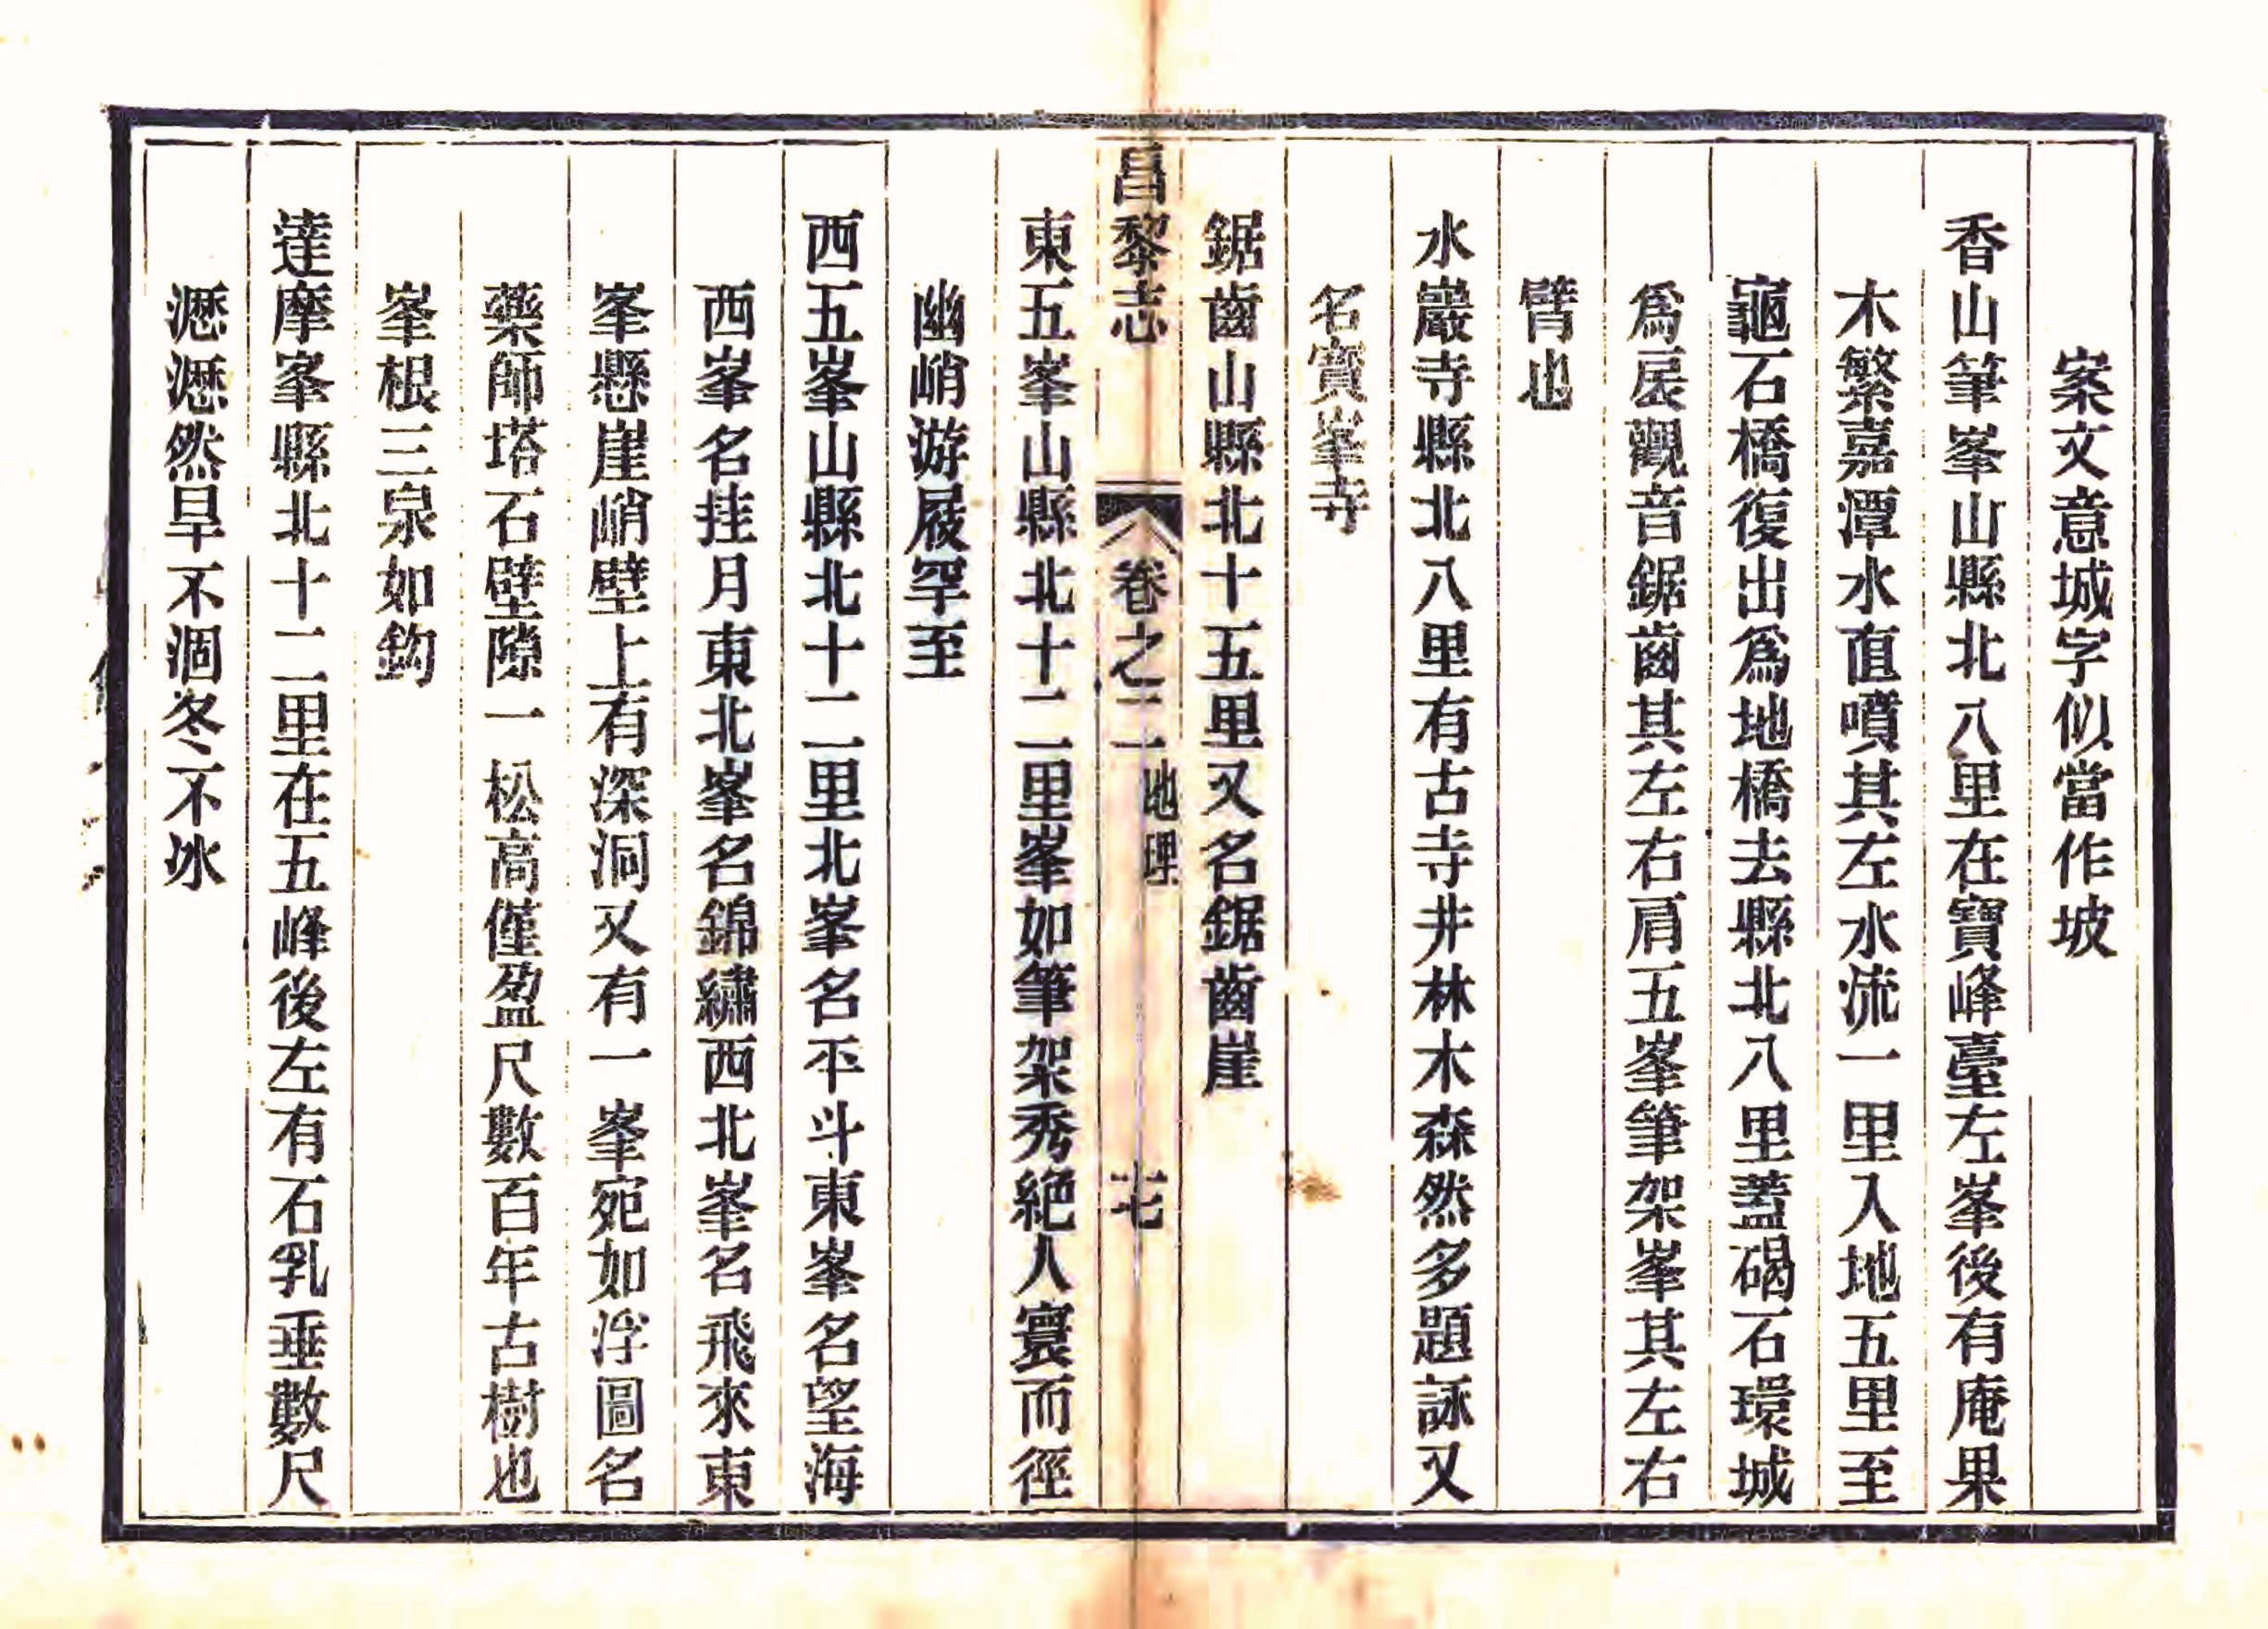 案文意城字似當作坡
香山筆峯山縣北八里在寶峰臺左峯後有庵果
木繁嘉潭水直噴其左水流一里入地五里至
龜石橋復出爲地橋去縣北八里蓋碣石環城
爲扆觀音鋸齒其左右肩五峯筆架峯其左右
臂也
水巖寺縣北八里有古寺井林木森然多題詠又
名寶峯寺
鋸齒山縣北十五里又名鋸齒崖
昌黎志 卷之二 地理 十七
東五峯山縣北十二里峯如筆架秀絶人寰而徑
幽峭游屐罕至
西五峯山縣北十二里北峯名平斗東峯名望海
西峯名挂月東北峯名錦繡西北峯名飛來東
峯懸崖峭壁上有深洞又有一峯宛如浮圖名
藥師塔石壁隙一松高僅盈尺數百年古樹也
峯根三泉如鈎
達摩峯縣北十二里在五峰後左有石乳垂數尺
瀝瀝然旱不涸冬不冰